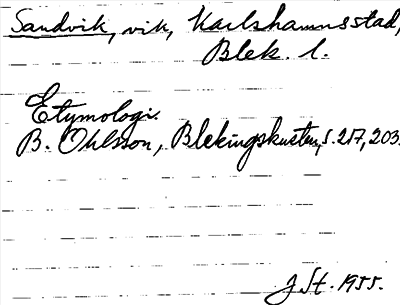 Sandvik, vik, Karlshamns stad,
Blek. l.
Etymologi.
B. Ohlsson, Blekingskusten, s. 217, 203.
J St. 1955.